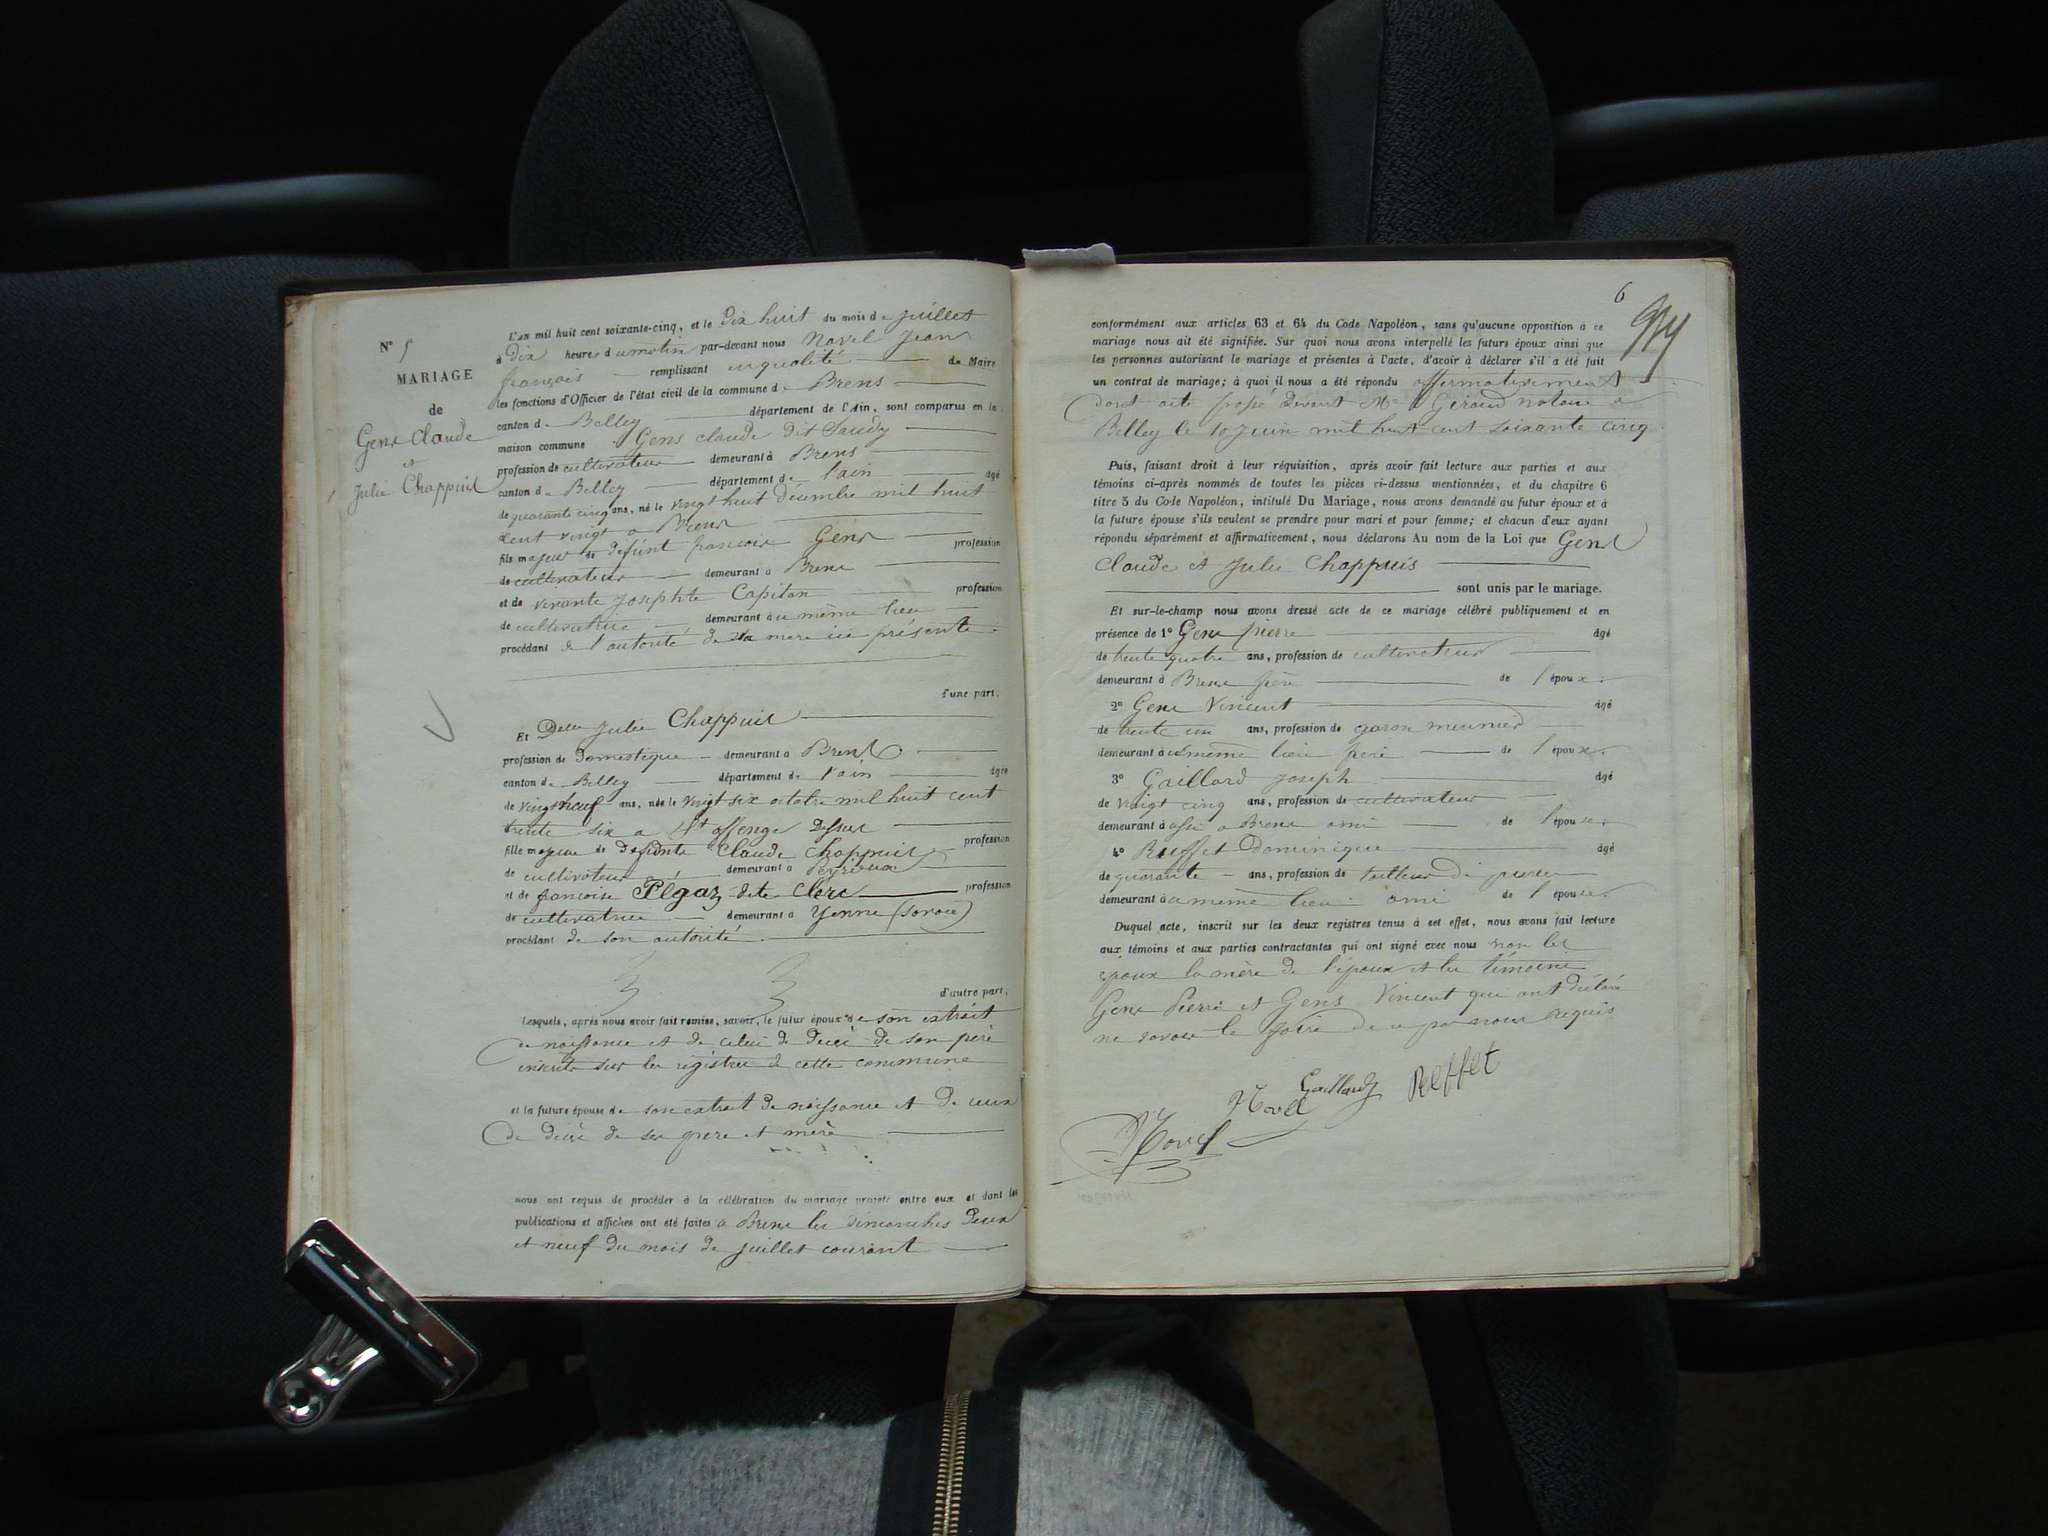 N° 5
MARIAGE
de
Gens Claude
et
Julie Chappuis
L'an mil huit cent soixante-cinq, et le Dix huit du mois de juillet
à Dix heures du matin par-devant nous Novel Jean
françois remplissant en qualité de Maire
les fonctions d'Officier de l'état civil de la commune de Brens
canton de Belley département de l'Ain, sont comparus en la
maison commune Gens claude Dit Saudy
profession de cultivateur demeurant à Brens
canton de Belley département de l'ain âgé
de quarante cinq ans, né le vingt huit décembre mil huit
cent vingt a Brens
fils majeur de défunt francois Gens profession
de cultivateur demeurant à Brens
et de vivante Josephte Capitan profession
de cultivatrice demeurant au même lieu
procédant de l'autorité de sa mere ici présente
d'une part,
Et Delle Julie Chappuis
profession de Domestique demeurant à Brens
canton de Belley département de l'ain âgée
de vingt neuf ans, née le vingt six octobre mil huit cent
trente six a St offenge Dessus
fille majeure de Défunte Claude Chappuis profession
de cultivateur demeurant à Peyrieux
et de francoise Pégaz dite Clerc profession
de cultivatrice demeurant à Yenne (Savoie)
procédant de son autorité
d'autre part,
Lesquels, après nous avoir fait remise, savoir, le futur époux de son extrait
de naissance et de celui de Décès de son père
inscrits sur les régistres de cette commune
et la future épouse de son extrait de naissance et de ceux
de décès de ses pere et mère
nous ont requis de procéder à la célébration du mariage projeté entre eux et dont les
publications et affiches ont été faites a Brens les dimanches Deux
et neuf du mois de juillet courant
6
conformément aux articles 63 et 64 du Code Napoléon, sans qu'aucune opposition à ce
mariage nous ait été signifiée. Sur quoi nous avons interpellé les futurs époux ainsi que
les personnes autorisant le mariage et présentes à l'acte, d'avoir à déclarer s'il a été fait
un contrat de mariage; à quoi il nous a été répondu affirmativement
dont acte passé devant Me Giraud notaire a
Belley le 10 Juin mil huit cent soixante cinq
Puis, faisant droit à leur réquisition, après avoir fait lecture aux parties et aux
témoins ci-après nommés de toutes les pièces ci-dessus mentionnées, et du chapitre 6
titre 5 du Code Napoléon, intitulé Du Mariage, nous avons demandé au futur époux et à
la future épouse s'ils veulent se prendre pour mari et pour femme; et chacun d'eux ayant
répondu séparément et affirmativement, nous déclarons Au nom de la Loi que Gens
Claude et Julie Chappuis
sont unis par le mariage.
Et sur-le-champ nous avons dressé acte de ce mariage célébré publiquement et en
présence de 1° Gens pierre âgé
de trente quatre ans, profession de cultivateur
demeurant à Brens frère de l'époux
2° Gens Vincent âgé
de trente un ans, profession de garson meunier
demeurant au même lieu frère de l'époux
3° Gaillard Joseph âgé
de vingt cinq ans, profession de cultivateur
demeurant à assi a Brens ami de l'épouse
4° Reffet Dominique âgé
de quarante ans, profession de tailleur de pierre
demeurant au même lieu ami de l'épouse
Duquel acte, inscrit sur les deux registres tenus à cet effet, nous avons fait lecture
aux témoins et aux parties contractantes qui ont signé avec nous non les
epoux la mère de l'époux et les témoins
Gens Pierre et Gens Vincent qui ont déclaré
ne savoir le faire de ce par nous requis
Gaillard Reffet
Novel
Novel